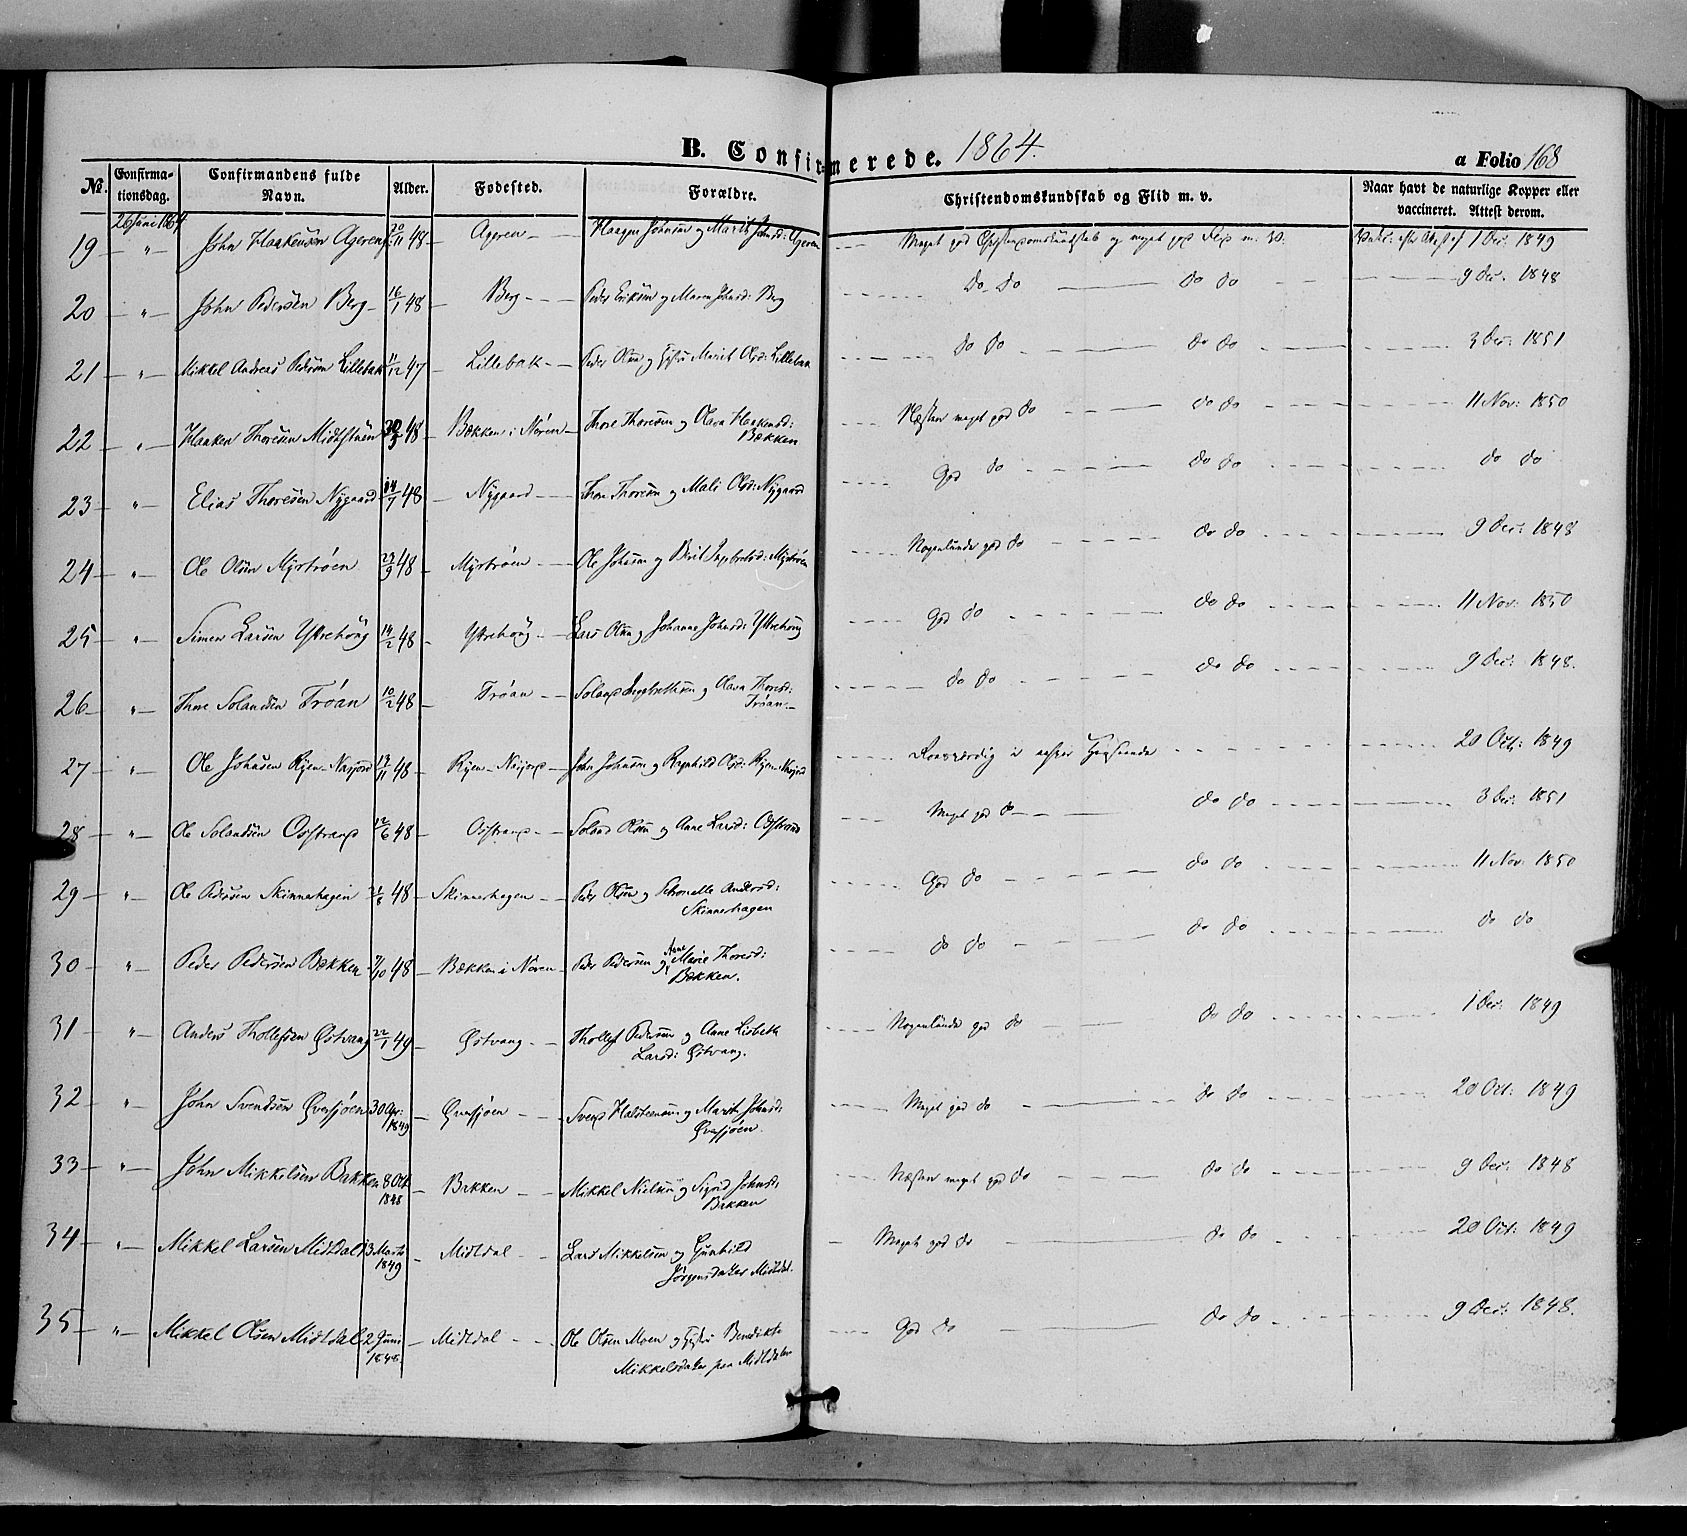 B. Confirmerede. 1864.
a Folio 168
No. Confirmationsdag. Confirmandens fulde Navn. Alder. Fødested. Forældre. Christendomskundskab og Flid m. v. Naar havt de naturlige Kopper eller vaccineret. Attest derom.
26 Juni 1864
19 " John Haakensøn Ageren 20/11 48 Ageren Haagen Johnsøn og Marit Johnsd: Ageren Meget god Christendomskundskab og meget god Flid m. V. 1 Dec: 1849
20 " John Pedersen Berg 16/1 48 Berg Peder Eriksøn og Maren Johnsd: Berg do do do do 9 Dec: 1848
21 " Mikkel Andreas Pedersøn Lillebak 11/12 47 Lillebak Peder Olsøn og Marit Olsd: Lillebak do do do do 3 Dec: 1851
22 " Haaken Thoresøn 48 Bækken i Nøren Thore Thoresøn og Olava Haakensd: Bækken Næsten meget god do do do 11 Nov: 1850
23 " Elias Thoresøn Nygaard 14/7 48 Nygaard Thore Thoresøn og Mali Olsd: Nygaard God do do do do do
24 " Ole Olsøn Myrtrøen 29/9 48 Myrtrøen Ole Johnsøn og Berit Ingebretsd: Myrtrøen Nogenlunde god do do do 9 Dec: 1848
25 " Simen Larsøn Ystrehaug 14/2 48 Ystrehaug Lars Olsøn og Johanne Johnsd: Ystrehaug God do do do 11 Nov: 1850
26 " Thore Solandsøn Trøan 10/2 48 Trøan Soland Ingebrethsøn og Olava Thoresd: Trøan do do do do 9 Dec: 1848.
27 " Ole Johnsøn Ryen 48 Ryen John Johnsøn og Ragnhild Olsd: Ryen Roesværdig i enhver Henseende 20 Oct: 1849
28 " Ole Solandsøn Osstrand 12/6 48 Osstrand Soland Olsøn og Anne Larsd: Osstrand Meget god do do do 3 Dec: 1851
29 " Ole Pedersøn Skinnerhagen 48 Skinnerhagen Peder Olsøn og Petronelle Andersd: Skinnerhagen God do do do 11 Nov: 1850
30 " Peder Pedersøn Bækken 48 Bækken i Nøren Peder Pedersøn og Anne Marie Thoresd: Bækken. do do do do do do
31 " Anders Thollefsøn Østvang 22/1 49 Østvang Tholleff Pedersøn og Anne Lisbeth Larsd: Østvang. Nogenlunde god do do do 1 Dec: 1849
32 " John Svendsøn Øversjøen 30 Apr: 1849 Øversjøen Svend Halstensøn og Marit Johnsd: Øversjøen. Meget god do do do 20 Oct: 1849
33 " John Mikkelsøn Bakken 8 Oct. 1848 Bakken Mikkel Nielsøn og Sigrid Johnsd: Bakken Næsten meget god do do do 9 Dec: 1848
34 " Mikkel Larsøn Midtdal 13 Marts 1849 Midtdal Lars Mikkelsøn og Gunhild Jørgensdatter Midtdal. Meget god do do do 20 Oct: 1849
35 " Mikkel Olsøn Midtdal 2 Juni 1848. Midtdal Ole Olsøn Moen og Benedikte Mikkelsdatter paa Midtdalen God do do do 9 Dec: 1848.